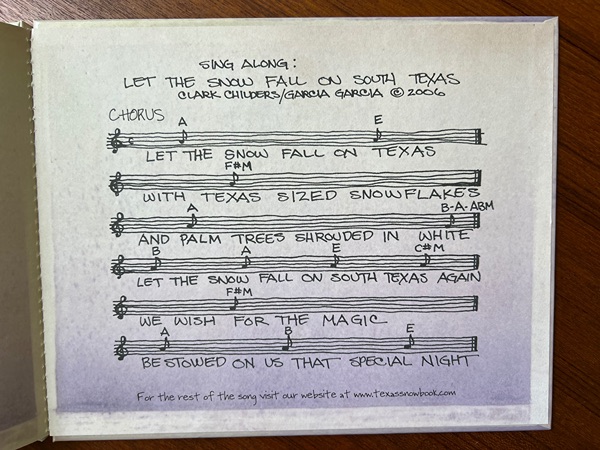 SING ALONG:
LET THE SNOW FALL ON SOUTH TEXAS
CLARK CHILDERS/GARCIA GARCIA © 2006
CHORUS
A E
LET THE SNOW FALL ON TEXAS
F#M
WITH TEXAS SIZED SNOWFLAKES
A B-A-ABM
AND PALM TREES SHROUDED IN WHITE
B A E C#M
LET THE SNOW FALL ON SOUTH TEXAS AGAIN
F#M
WE WISH FOR THE MAGIC
A B E
BESTOWED ON US THAT SPECIAL NIGHT
For the rest of the song visit our website at www.texassnowbook.com